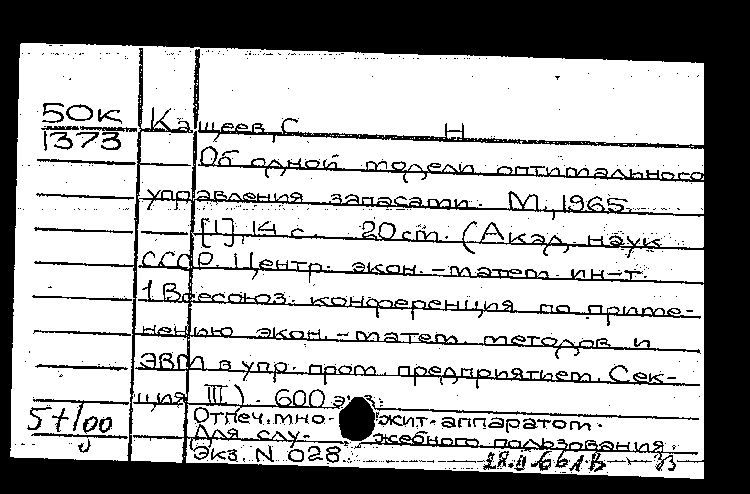 50К Кащеев, С Н
1373
Об одной модели оптимального
управления запасами. М., 1965
[1], 14 с. 20 см. (Акад. наук
СССР. Центр. экон.-матем. ин-т.
1 Всесоюз. конференция по приме-
нению экон.-матем. методов и
ЭВМ в упр. пром. предприятием. Сек-
ция III). 600 экз.
Отпеч. мно- жит. аппаратом.
57/00 Для слу- жебного пользования.
Экз. N 028.
33